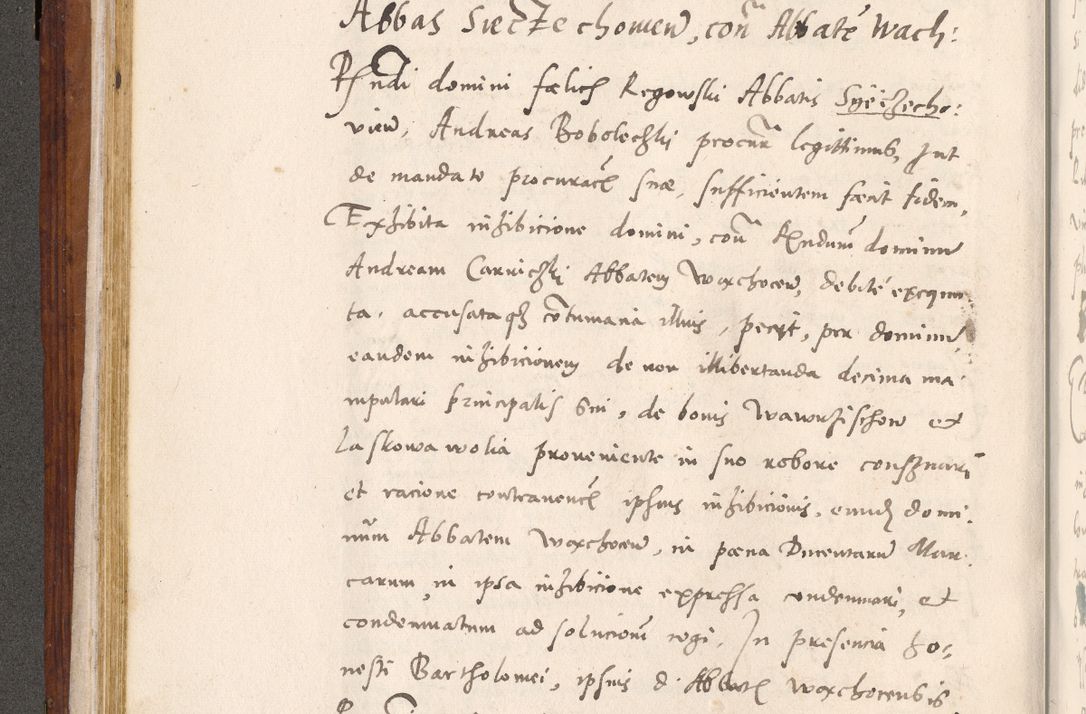 Abbas Sieczechowien, con͠ Abbaté Wach:
Rndi domini fœlicis Regowski Abbatis Syeczecho:
vien̄, Andreas Bobolechkj procur̄ legittimus, Jnt
de mandato procuraē suæ, sufficientem fœcit fidem,
Exhibita inhibicione domini, con͠ Rndum dominū
Andream Abbatem Wąchocen̄, debité exequu
ta, accusataqȝ cōtumacia illius, pecyt, per dominū
eandem inhibicionem de non illibertanda decima ma
nipulari principalis sui, de bonis Wawrzischow et
Laskowa wolia proveniente in suo robore
et racione contravencē ipsius inhibicionis, eundē domi
num Abbatem Wąchocen̄, in pæna Ducentarū Mar
carum, in ipsa inhibicione expressa condemnari, et
condemnatum ad solucionē cogi, In presencia ho:
nesti Bartholomei, ipsius d. Abbatis Wąchocensis